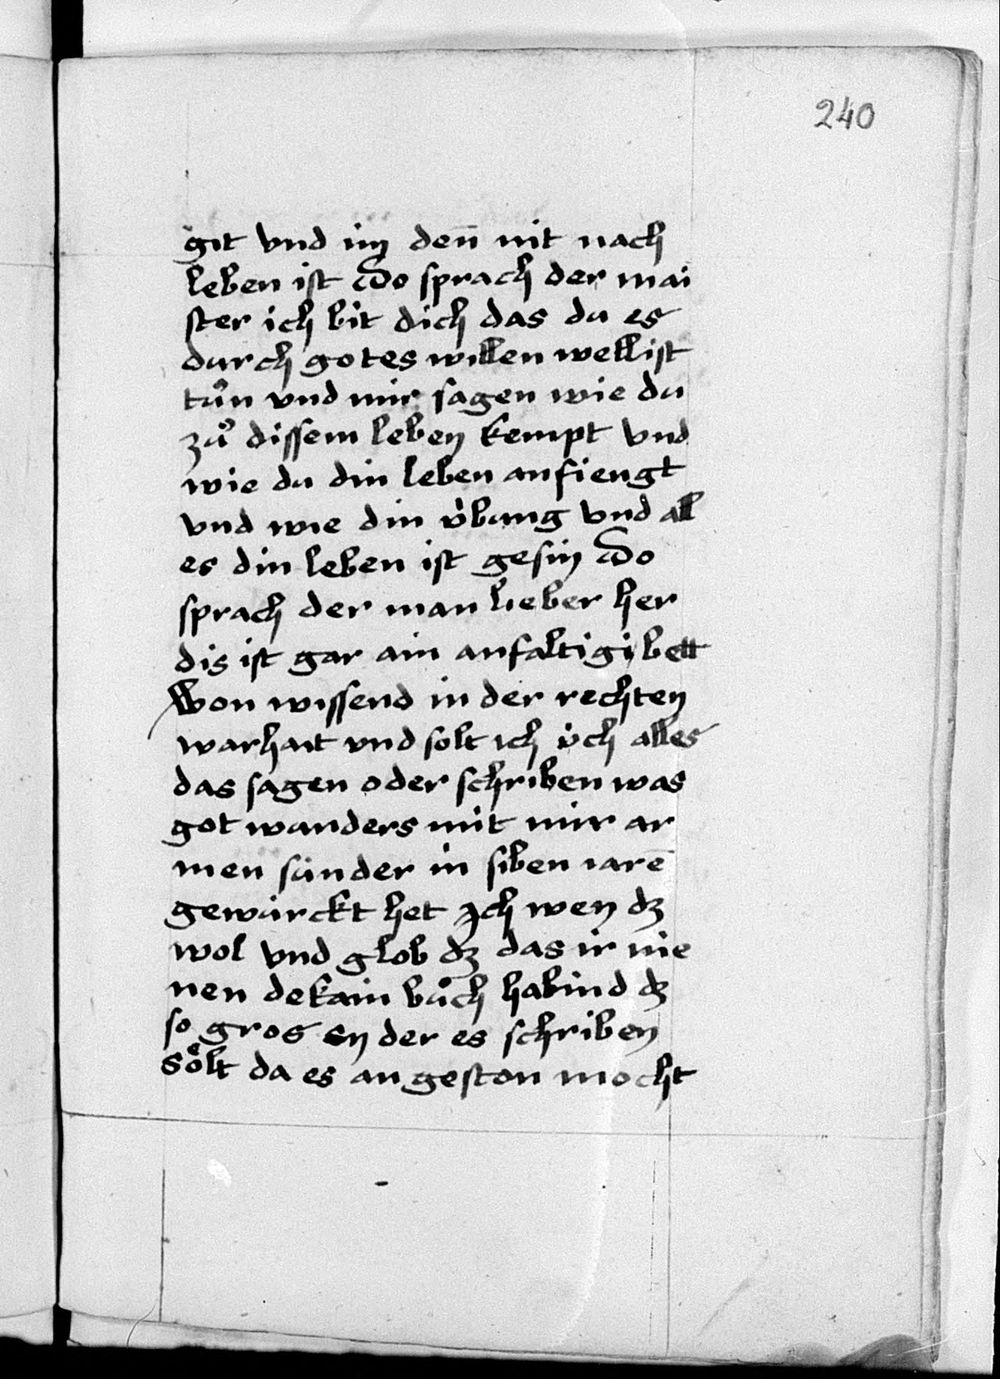 240
git vnd im den̄ nit nach
leben ist Do sprach der mai
ster ich bit dich das du es
durch gotes willen wellist
tuͦn vnd mir sagen wie du
zuͦ dissem leben kempt vnd
wie du din leben anfiengt
vnd wie din v̈bung vnd all
es din leben ist gesin Do
sprach der man lieber her
dis ist gar ain anfaltigi bett
Won wissend in der rechten
warhait vnd solt ich v̈ch alles
das sagen oder schriben was
got wunders mit mir ar
men sünder in siben iarē
gewürckt het Ich wen dz
wol vnd glob dz das ir nie
nen dekain buͦch habind dz
so gros sy der es schriben
soͤlt da es an geston mocht